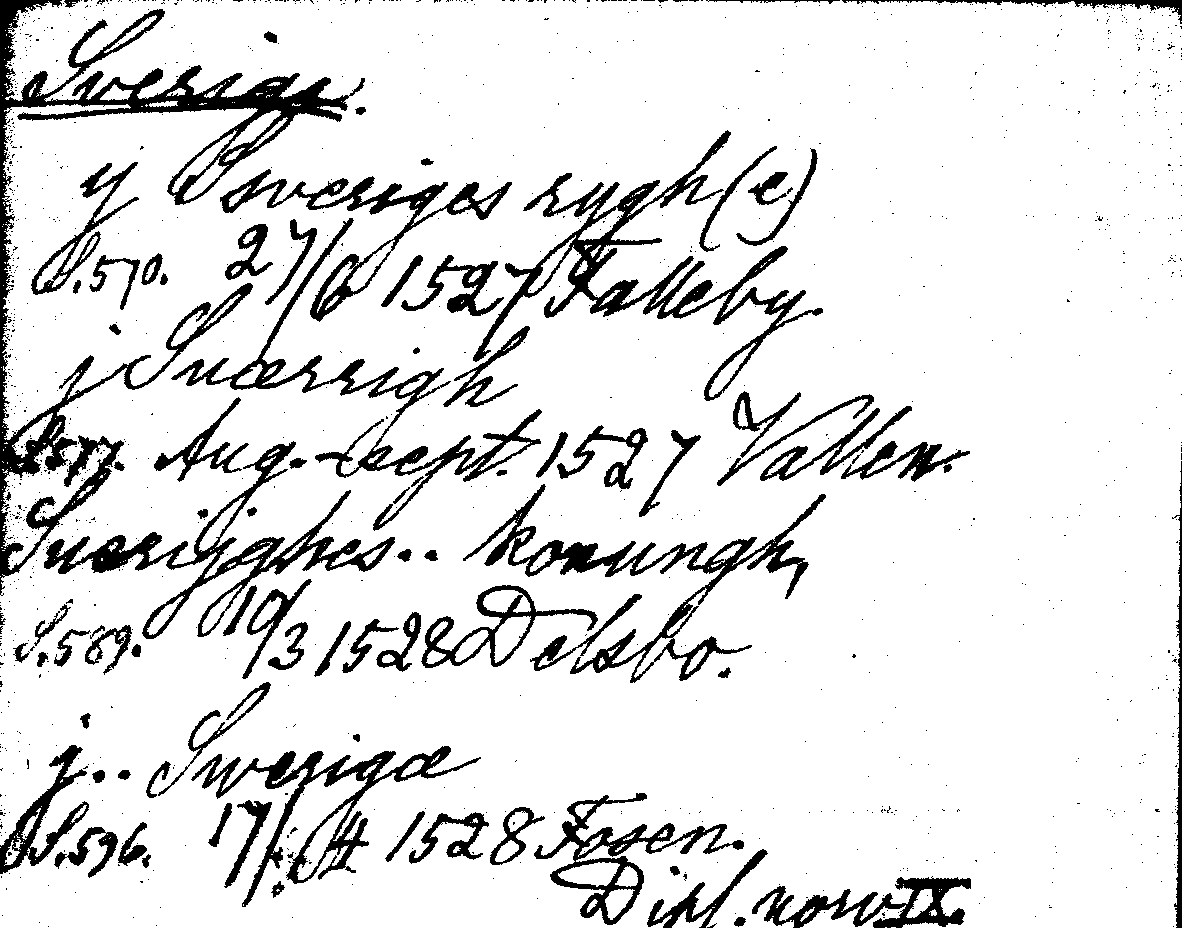 Sverige.
y Sweriges rygh(e)
S.570. 27/6 1527 Falleby.
j Suærrigh
S.577. Aug.-sept. 1527 Vallen.
Suerijghes.. konungh,
S.589. 10/3 1528 Delsbo.
j.. Swerigæ
S.596. 17/4 1528 Fosen.
Dipl. norv IX.